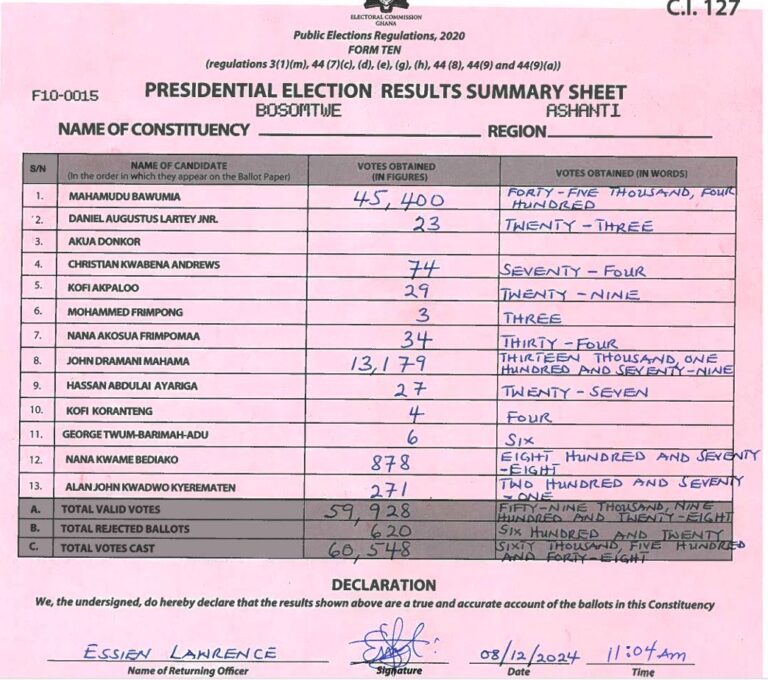 C.I. 127
ELECTORAL COMMISSION
GHANA
Public Elections Regulations, 2020
FORM TEN
(regulations 3(1)(m), 44 (7)(c), (d), (e), (g), (h), 44 (8), 44(9) and 44(9)(a))
F10-0015 PRESIDENTIAL ELECTION RESULTS SUMMARY SHEET
BOSOMTWE ASHANTI
NAME OF CONSTITUENCY REGION
S/N NAME OF CANDIDATE (In the order in which they appear on the Ballot Paper) VOTES OBTAINED (IN FIGURES) VOTES OBTAINED (IN WORDS)
1. MAHAMUDU BAWUMIA 45,400 FORTY-FIVE THOUSAND, FOUR HUNDRED
2. DANIEL AUGUSTUS LARTEY JNR. 23 TWENTY-THREE
3. AKUA DONKOR
4. CHRISTIAN KWABENA ANDREWS 74 SEVENTY-FOUR
5. KOFI AKPALOO 29 TWENTY-NINE
6. MOHAMMED FRIMPONG 3 THREE
7. NANA AKOSUA FRIMPOMAA 34 THIRTY-FOUR
8. JOHN DRAMANI MAHAMA 13,179 THIRTEEN THOUSAND, ONE HUNDRED AND SEVENTY-NINE
9. HASSAN ABDULAI AYARIGA 27 TWENTY-SEVEN
10. KOFI KORANTENG 4 FOUR
11. GEORGE TWUM-BARIMAH-ADU 6 SIX
12. NANA KWAME BEDIAKO 878 EIGHT HUNDRED AND SEVENTY-EIGHT
13. ALAN JOHN KWADWO KYEREMATEN 271 TWO HUNDRED AND SEVENTY-ONE
A. TOTAL VALID VOTES 59,928 FIFTY-NINE THOUSAND, NINE HUNDRED AND TWENTY-EIGHT
B. TOTAL REJECTED BALLOTS 620 SIX HUNDRED AND TWENTY
C. TOTAL VOTES CAST 60,548 SIXTY THOUSAND, FIVE HUNDRED AND FORTY-EIGHT
DECLARATION
We, the undersigned, do hereby declare that the results shown above are a true and accurate account of the ballots in this Constituency
ESSIEN LAWRENCE 08/12/2024 11:04 AM
Name of Returning Officer Signature Date Time